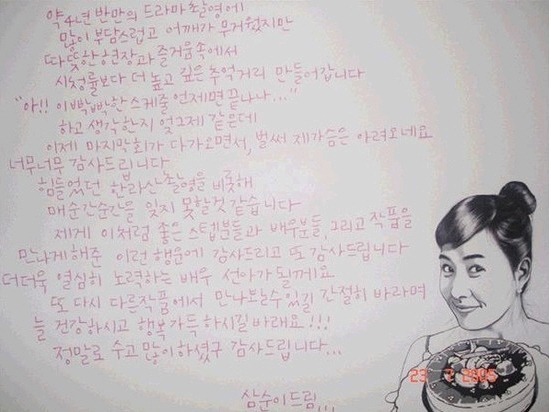 약4년 반만의 드라마촬영에
많이 부담스럽고 어깨가 무거웠지만
따뜻한현장과 즐거움속에서
시청률보다 더 높고 깊은 추억거리 만들어갑니다
"아!! 이빡빡한스케줄 언제면끝나나..."
하고 생각한지 엊그제 같은데
이제 마지막회가 다가오면서, 벌써 제가슴은 아려오네요
너무너무 감사드립니다
힘들었던 한라산촬영을 비롯해
매순간순간을 잊지 못할것 같습니다
제게 이처럼 좋은 스텝분들과 배우분들, 그리고 작품을
만나게해준 이런 행운에 감사드리고 또 감사드립니다
더더욱 열심히 노력하는 배우 선아가 될께요
또 다시 다른작품에서 만나뵐수있길 간절히 바라며
늘 건강하시고 행복가득하시길바래요!!!
정말로 수고 많이하셨구 감사드립니다...
삼순이드림...
23 7 2005